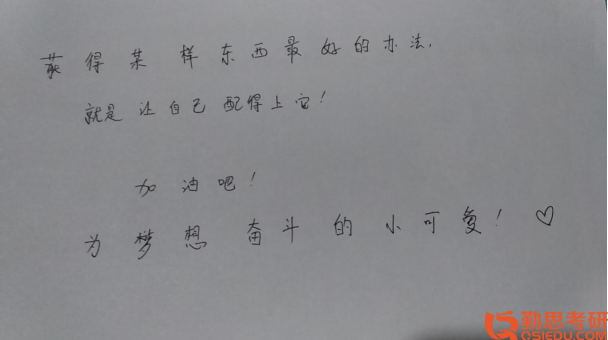 获得某样东西最好的办法,
就是让自己配得上它!
加油吧!
为梦想奋斗的小可爱!♡
勤思考研
QSIEDU.COM